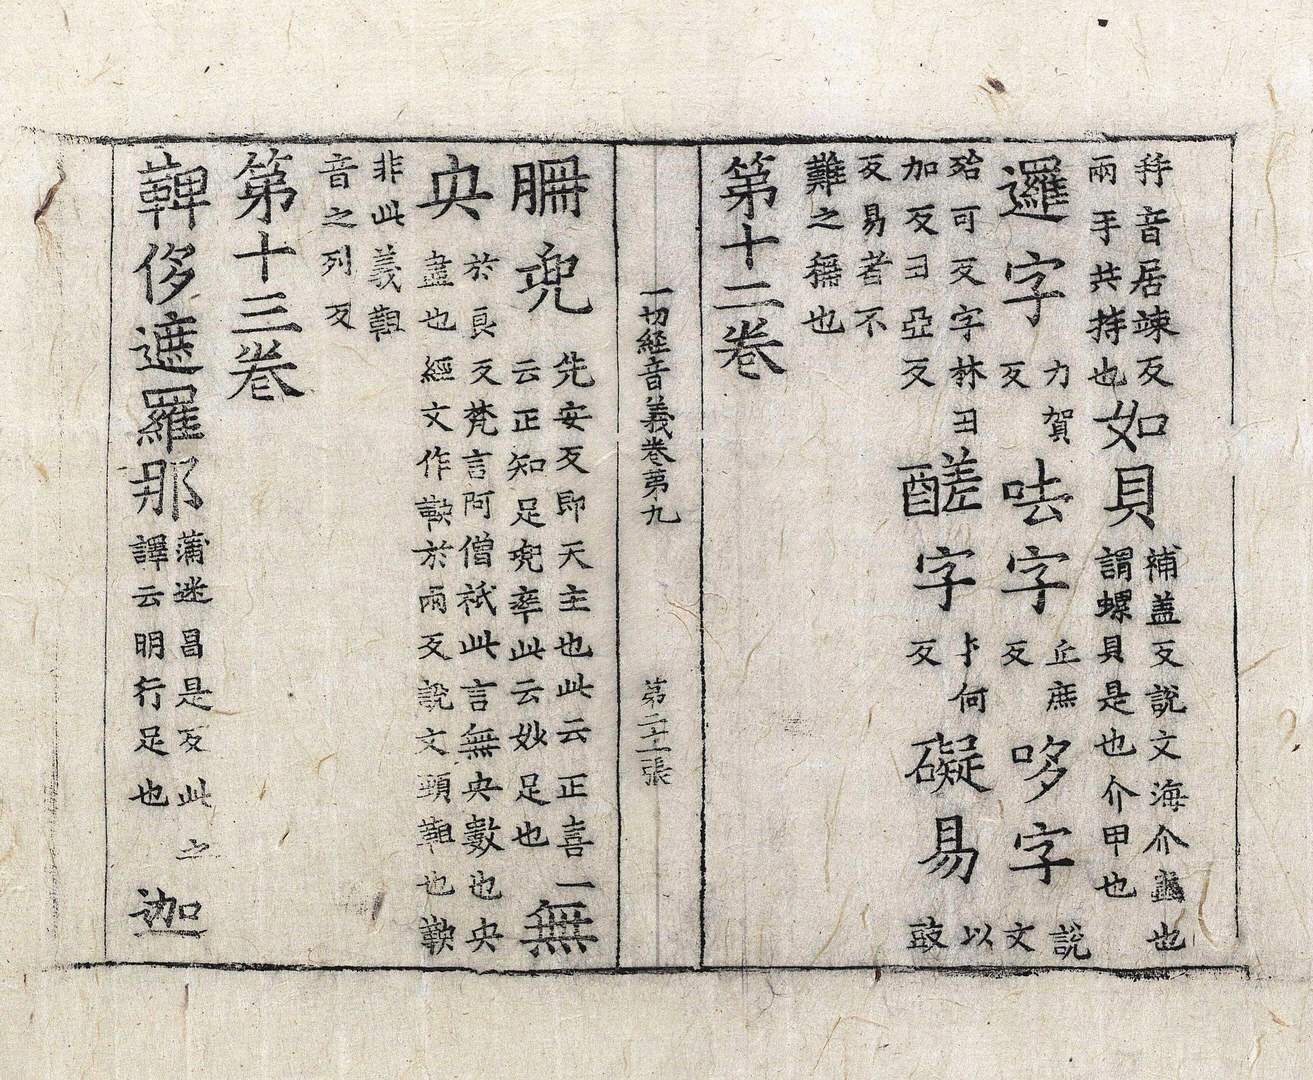 音居竦反兩手共持也如貝補蓋反說文海介蟲也謂螺貝是也介甲也
邏字力賀反呿字丘庶反哆字說文
殆可反字林曰加反曰亞反醝字才何反礙易以豉
反易者不難之稱也
第十二卷
一切経音義卷第九 第二十二張
兜先安反即天主也此云正喜一云正知足兜率此云妙足也無
央於良反梵言阿僧祇此言無央數也央盡也經文作鞅於兩反說文頸靼也鞅
非此義靼音之列反
第十三卷
鞞侈遮羅那蒲迷昌是反此之譯云明行足也迦